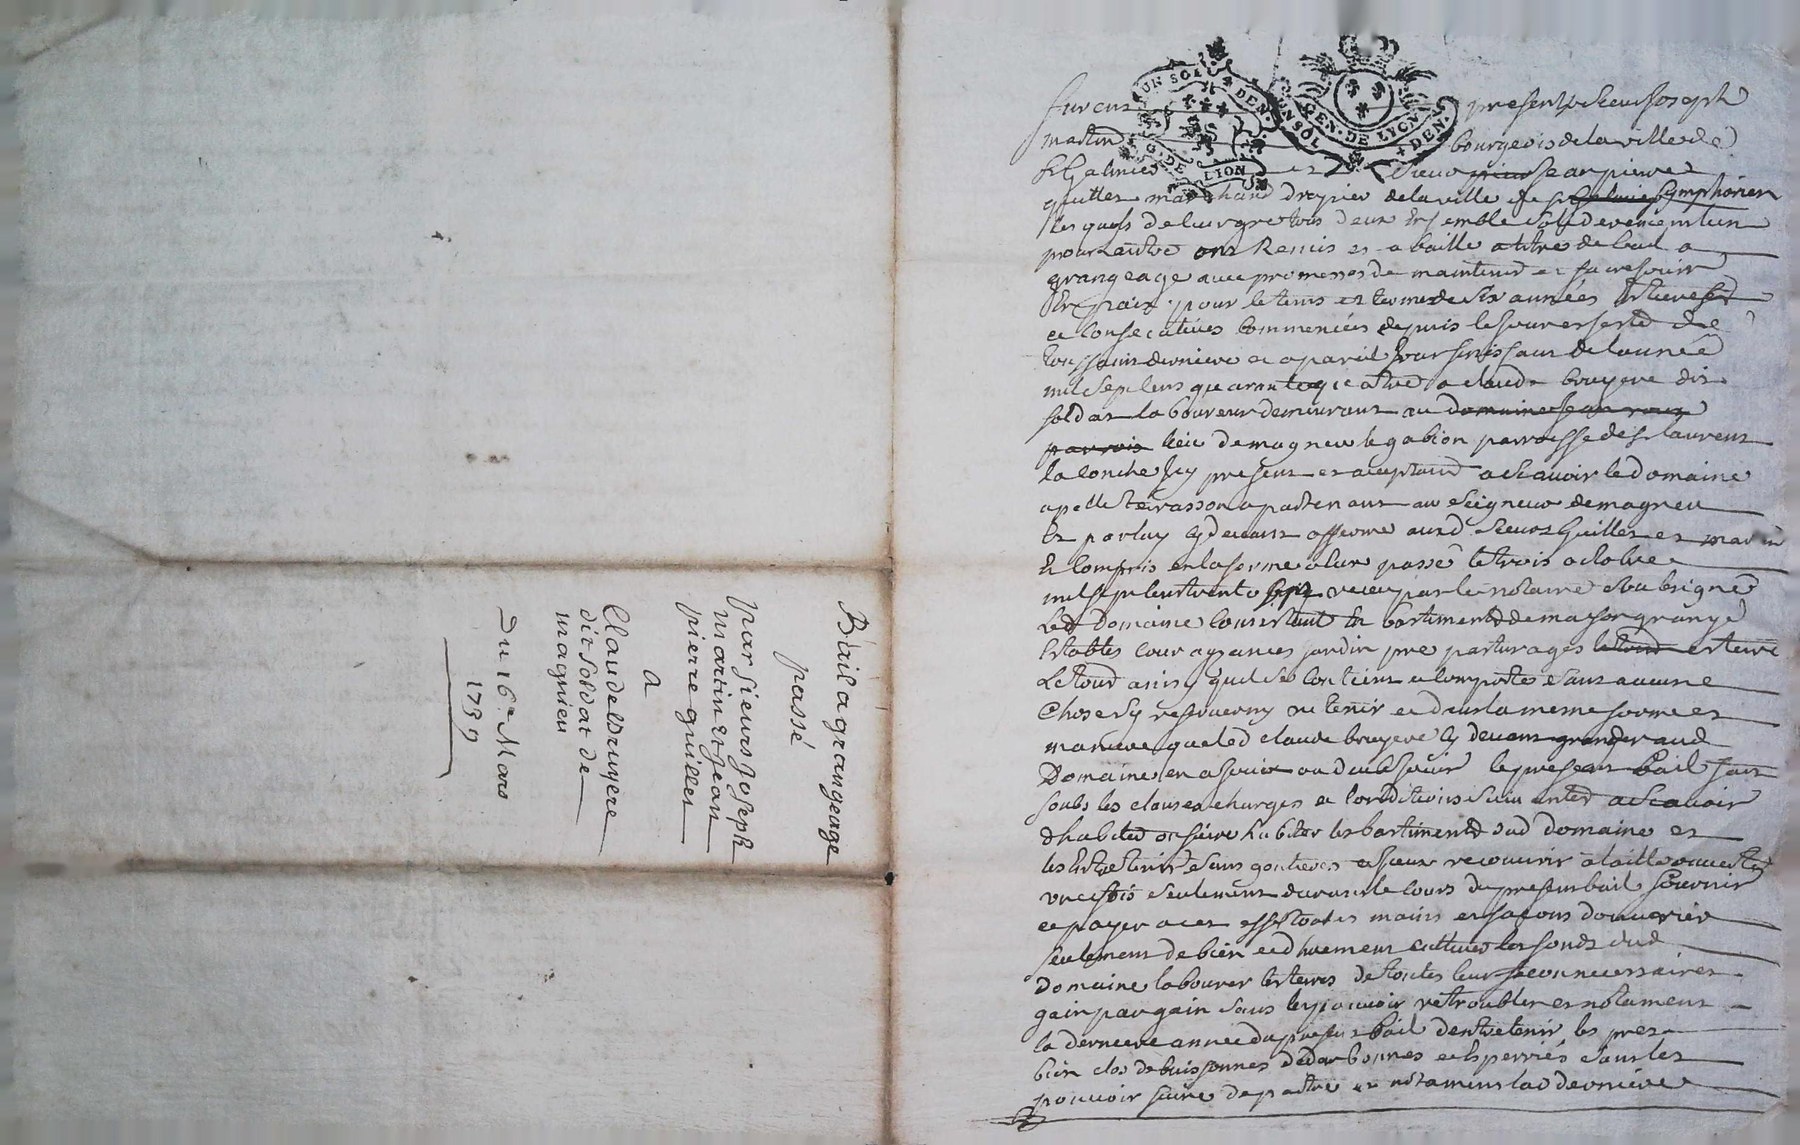 Bail a grangeage
passé
par sieurs Joseph
martin et jean
pierre guillet
A
Claude bruyere
dit soldat de
magnieu
Du 16e Mars
1739
UN SOL 4 DEN.
G. DE LION
GEN. DE LYON
UN SOL 4 DEN.
furent present sieur Joseph
martin bourgeois de la ville de
St Galmier et Sieur jean pierre
guillet marchand drapier de la ville de St Symphorien
lesquels de leur gre tous deux ensemble solidairement lun
pour lautre ont Remis et a baille a titre de bail a
grangeage avec promesses de maintenir et faire jouir
En paix pour le tems et terme de six années Entieres
et Consecutives Commencées depuis le jour et feste de
toussaint derniere et a pareil jour finissant de lannée
mil sept cens quarante quatre a claude bruyere dit
soldat laboureur demeurant au domaine jean
lieu de magneu le gabion parroisse de St laurent
la conche Icy present et acceptant a Scavoir le domaine
apellé terrasson apartenant au Seigneur de magneu
Et par luy cy devant afferme aud Sieurs Guillet et martin
Et Compris en la ferme a eux passé le trois octobre
mil sept cens trente sept receu par le notaire Soubsigné
Led Domaine Consistant En bastiments de maison grange
Estables cour aysances jardin pre pasturages et terre
Le tout ainsy quil se Contient et comporte Sans aucune
Chose sy reserver ny retenir et dans la meme forme et
maniere que led claude bruyere cy devant granger aud
Domaine en a jouir ou deub jouir le present bail fait
soubs les clauses charges et Conditions Suivantes a Scavoir
dhabiter ou faire habiter les bastiments dud Domaine et
les Entretenir Sans goutieres recouvrir a taille ouverte
une fois Seulement durant le cours du present bail fournir
et payer a cet effet toutes mains et façons douvrier
seulement de bien et dhuement cultiver les fonds dud
Domaine labourer les terres de toutes leur façon necessaires
gain par gain sans les pouvoir retroubler et notament
la derniere année du present bail dentretenir les prez
bien clos de buissonnes et Esperriés Sans les
pouvoir faire depaitre et notament lad derniere